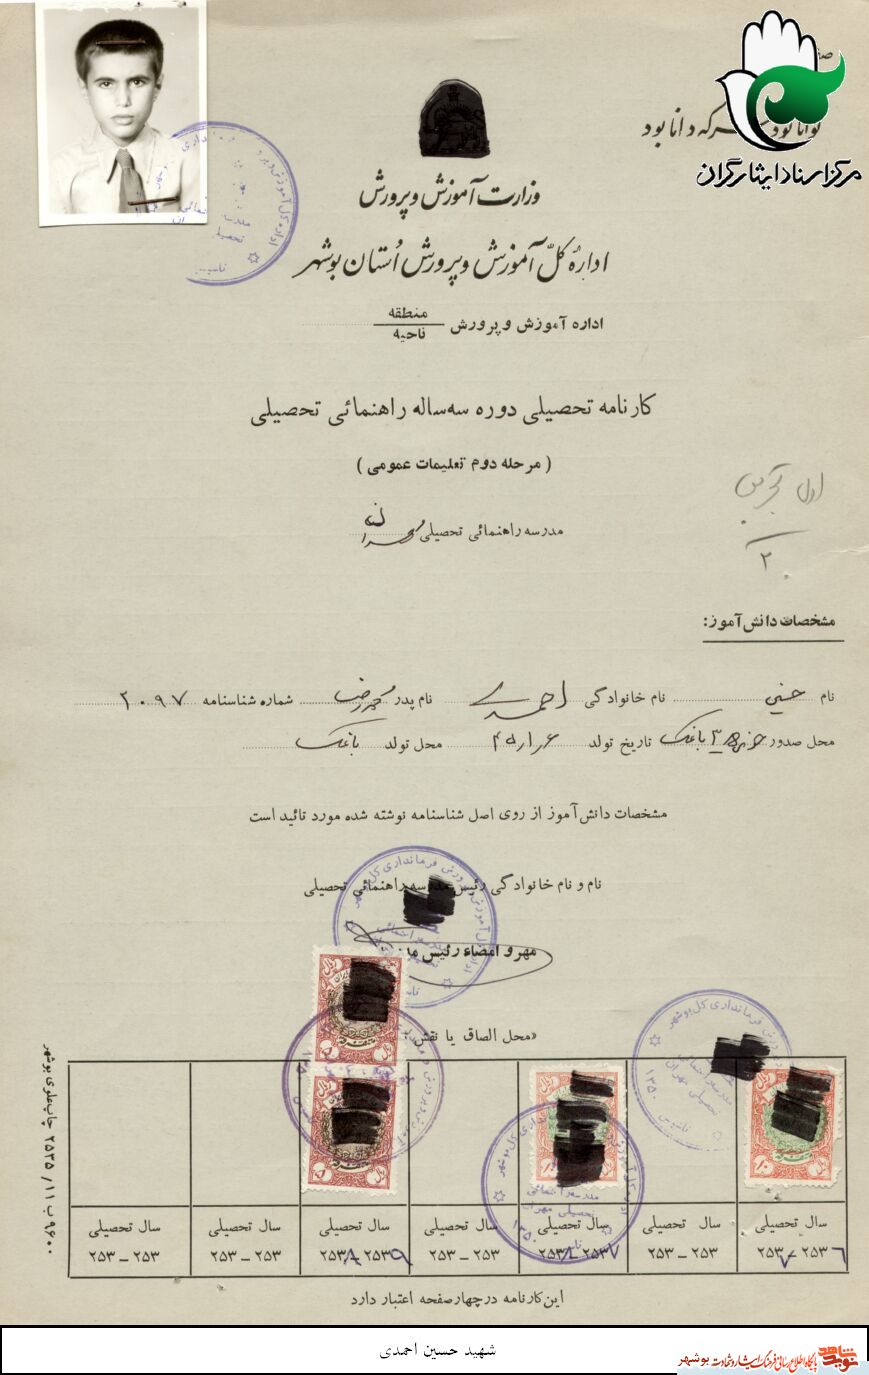 توانا بود هر که دانا بود
مرکز اسناد ایثارگران
وزارت آموزش و پرورش
ادارهٔ کلّ آموزش و پرورش اُستان بوشهر
اداره آموزش و پرورش منطقه
ناحیه
کارنامه تحصیلی دوره سه‌ساله راهنمائی تحصیلی
( مرحله دوم تعلیمات عمومی )
اول
۲
مدرسه راهنمائی تحصیلی مهران
مشخصات دانش‌آموز:
نام حسین نام خانوادگی احمدی نام پدر محمدرضا شماره شناسنامه ۲۰۹۷
محل صدور باغک تاریخ تولد محل تولد باغک
مشخصات دانش‌آموز از روی اصل شناسنامه نوشته شده مورد تائید است
نام و نام خانوادگی رئیس مدرسه راهنمائی تحصیلی
مهر و امضاء رئیس
«محل الصاق یا نقش
سال تحصیلی سال تحصیلی سال تحصیلی سال تحصیلی سال تحصیلی سال تحصیلی سال تحصیلی
۲۵۳۶ - ۲۵۳۷ ۲۵۳ - ۲۵۳ ۲۵۳۷ - ۲۵۳۸ ۲۵۳ - ۲۵۳ ۲۵۳۹ - ۲۵۳۸ ۲۵۳ - ۲۵۳ ۲۵۳ - ۲۵۳
این کارنامه در چهار صفحه اعتبار دارد
۹۶۰۰ ب ۱۱/ ۲۵۳۵ چاپ علوی بوشهر
شهید حسین احمدی
نوید شاهد
پایگاه اطلاع رسانی فرهنگ ایثار و شهادت بوشهر